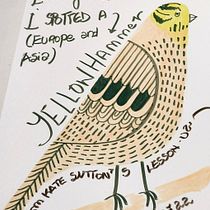 I SPOTTED A
(EUROPE and
ASIA)
YELLOWHAMMER
KATE SUTTON'S
LESSON